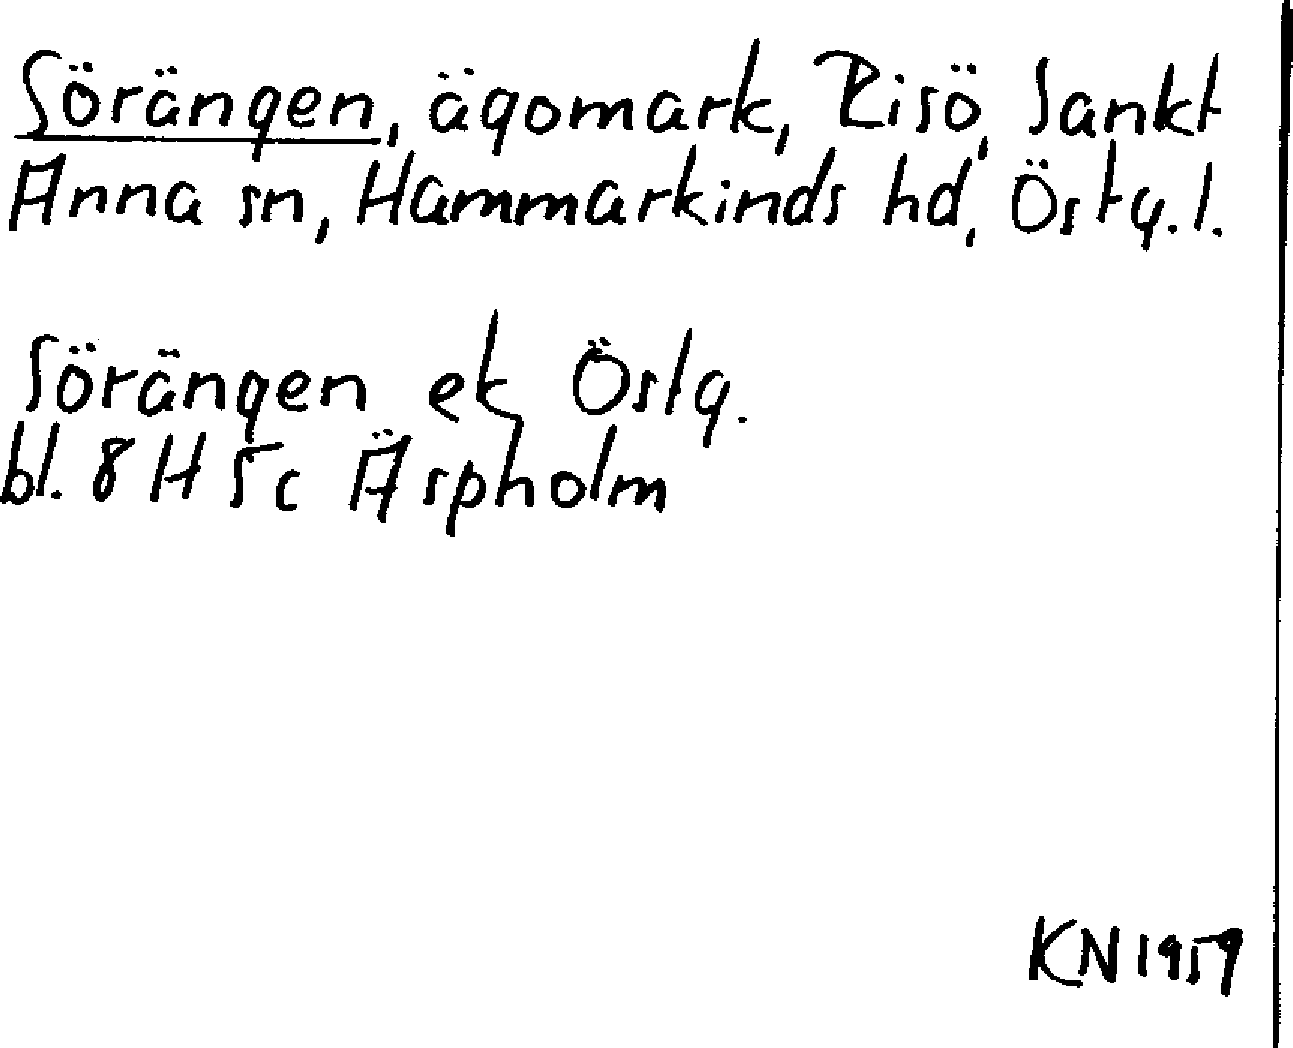 Sörängen, ägomark, Risö, Sankt
Anna sn, Hammarkinds hd, Östg.l.
Sörängen ek Östg.
bl. 8 H 5c Äspholm
KN 1959